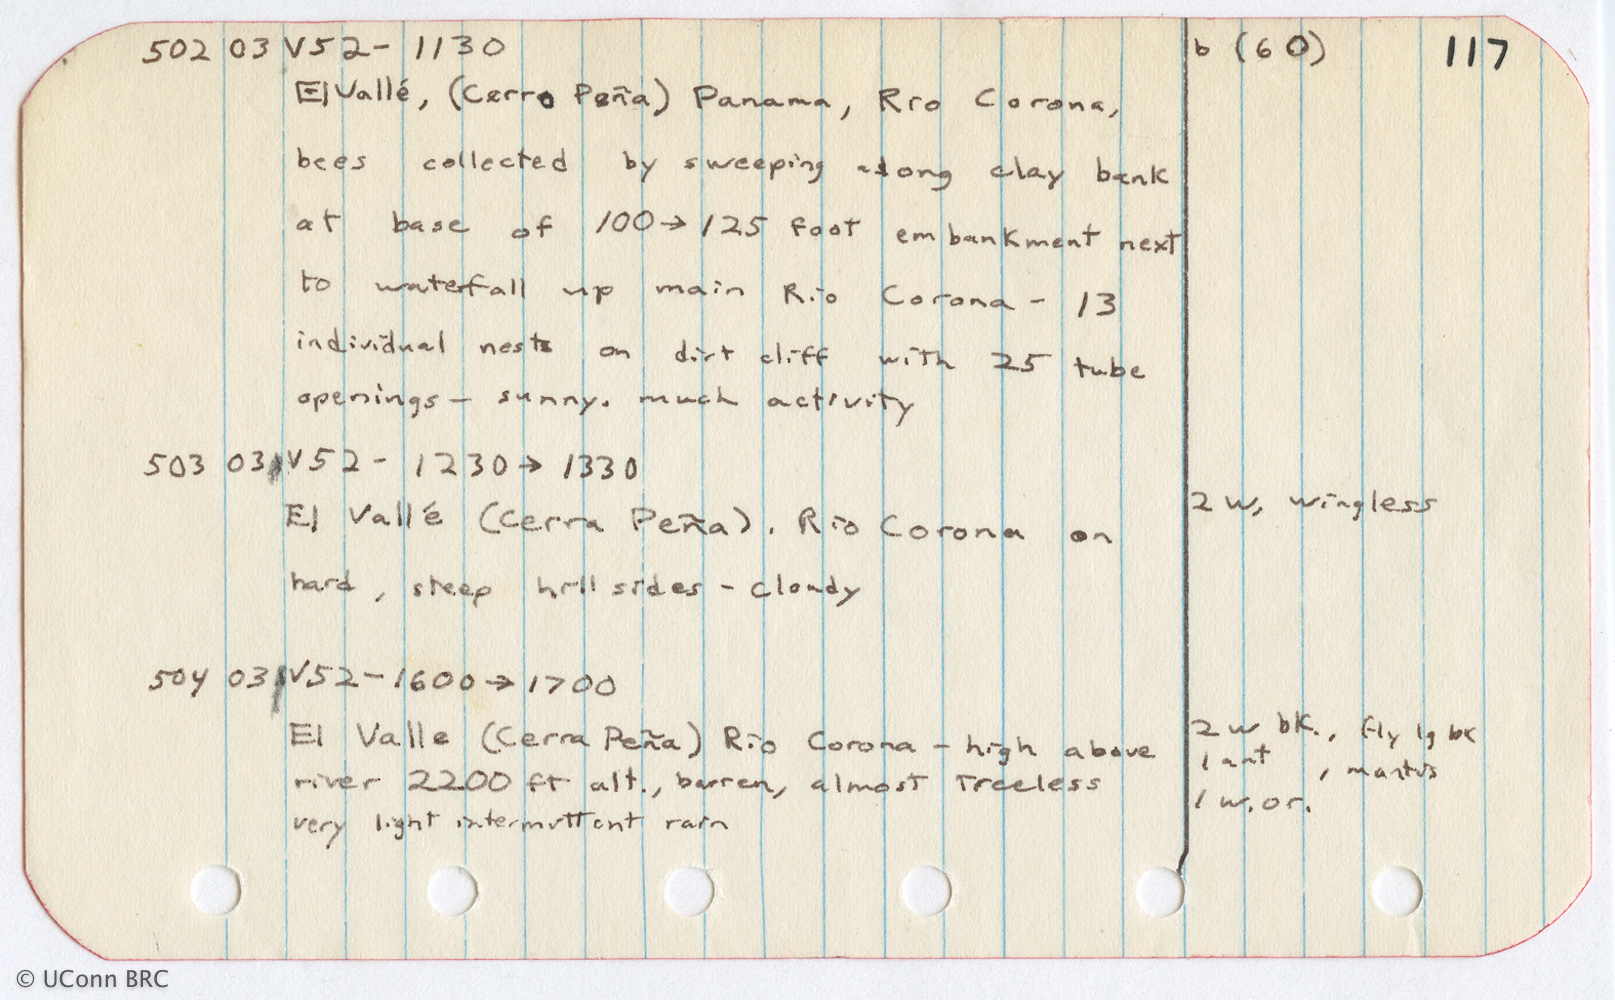 502 03 V52- 1130 b (60) 117
El Vallé, (Cerro Peña) Panama, Rio Corona,
bees collected by sweeping along clay bank
at base of 100→125 foot embankment next
to waterfall up main Rio Corona - 13
individual nests on dirt cliff with 25 tube
openings - sunny. much activity
503 03 V52- 1230→ 1330
El Vallé (Cerra Peña). Rio Corona on 2 w, wingless
hard, steep hill sides - cloudy
504 03 V52-1600→1700
El Valle (Cerra Peña) Rio Corona - high above 2 w bk., fly lg bk
river 2200 ft alt., barren, almost treeless 1 ant , mantis
very light intermittent rain 1 w. or.
© UConn BRC